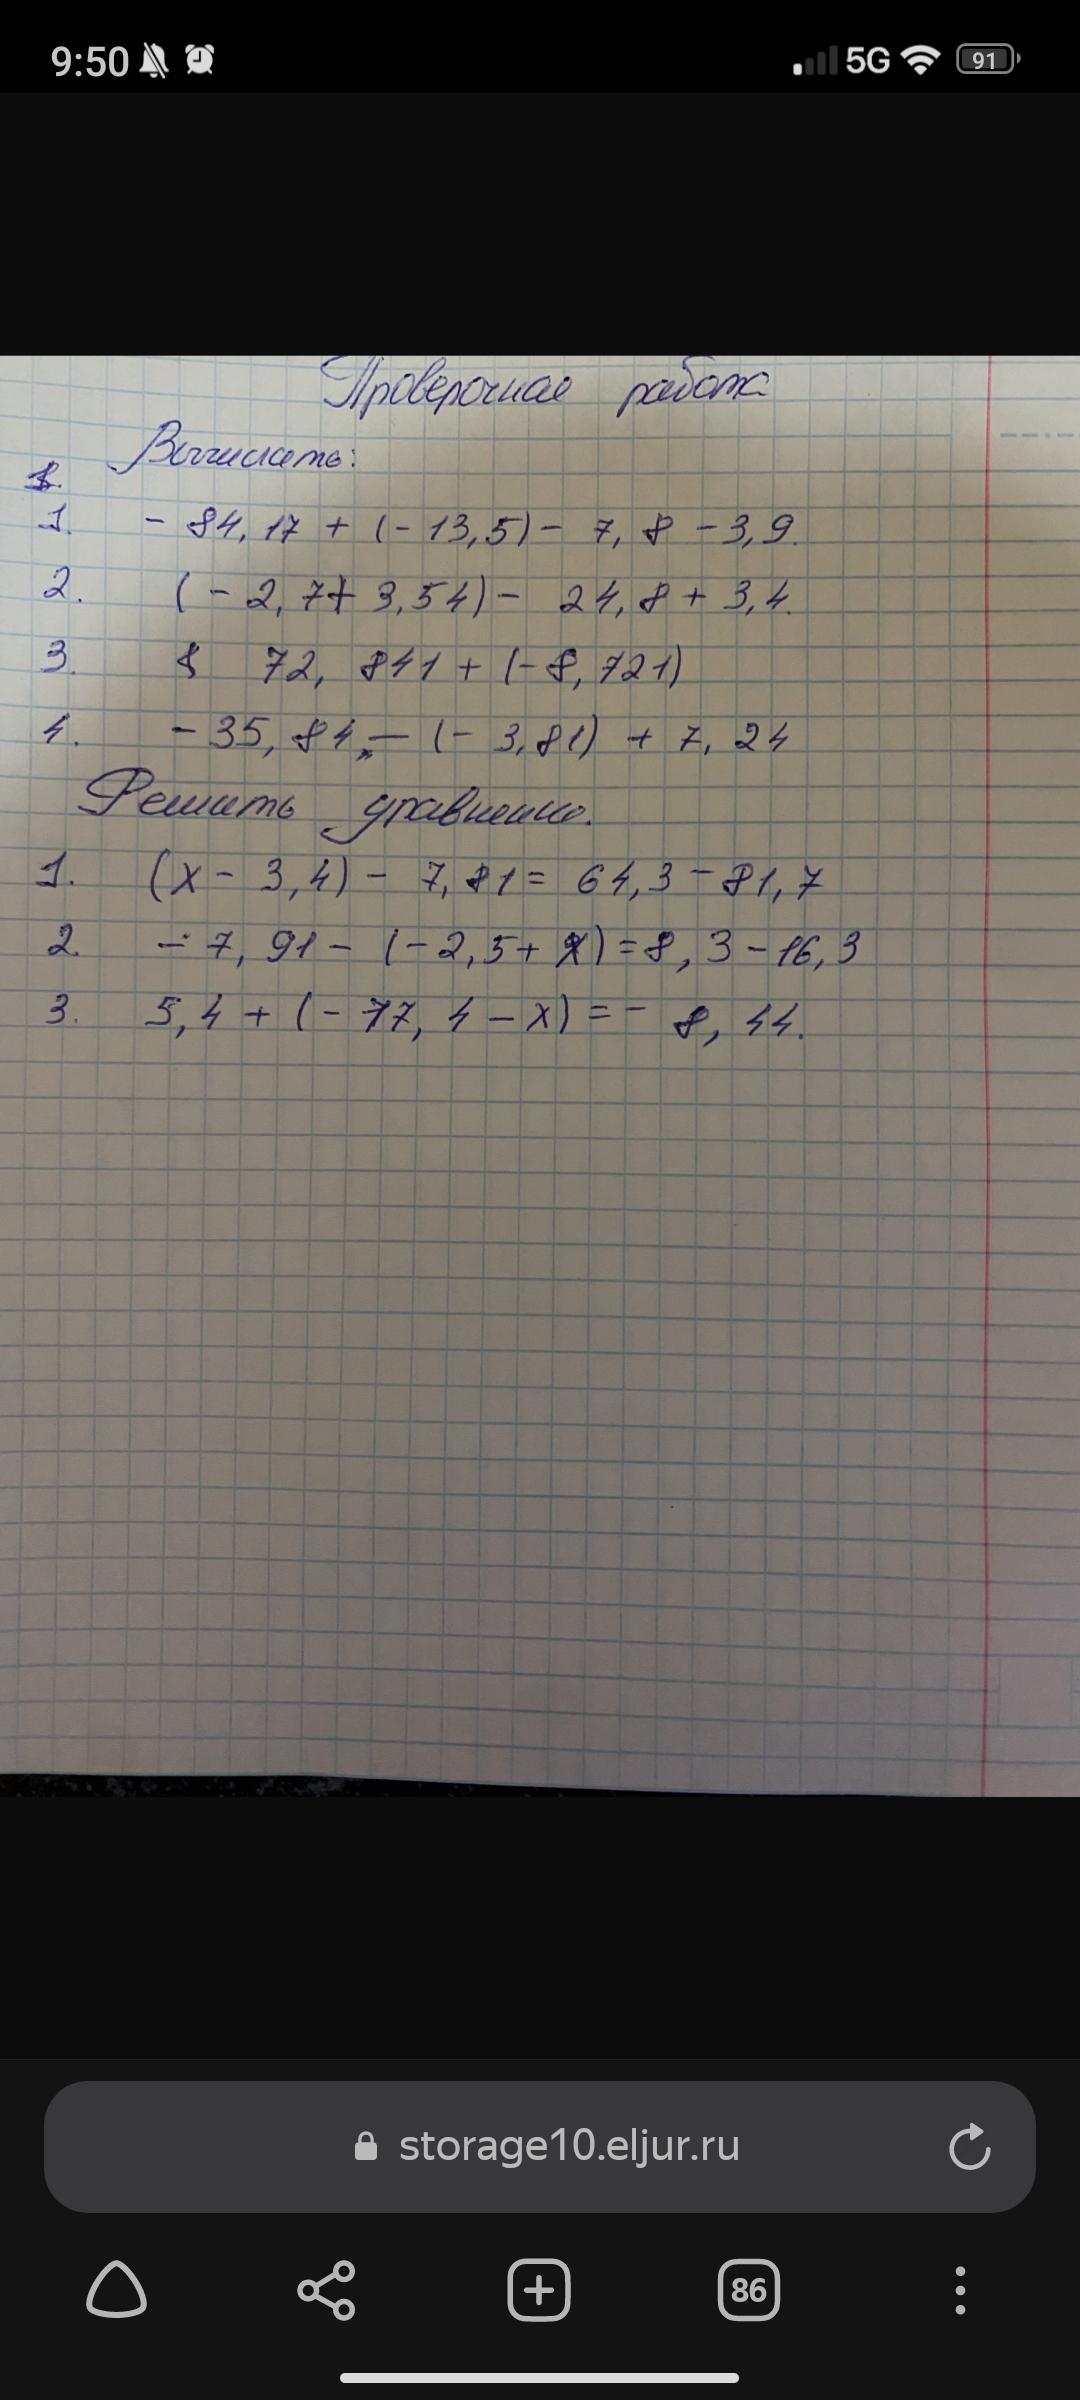 9:50 5G 91
Проверочная работа
Вычислить:
1.
1. - 84,17 + (-13,5) - 7,8 - 3,9.
2. (-2,7 + 3,54) - 24,8 + 3,4.
3. 72,841 + (-8,721)
4. - 35,84 - (-3,81) + 7,24
Решить уравнение.
1. (x - 3,4) - 7,81 = 64,3 - 81,7
2. - 7,91 - (-2,5 + x) = 8,3 - 16,3
3. 5,4 + (-77,4 - x) = - 8,44.
storage10.eljur.ru
86